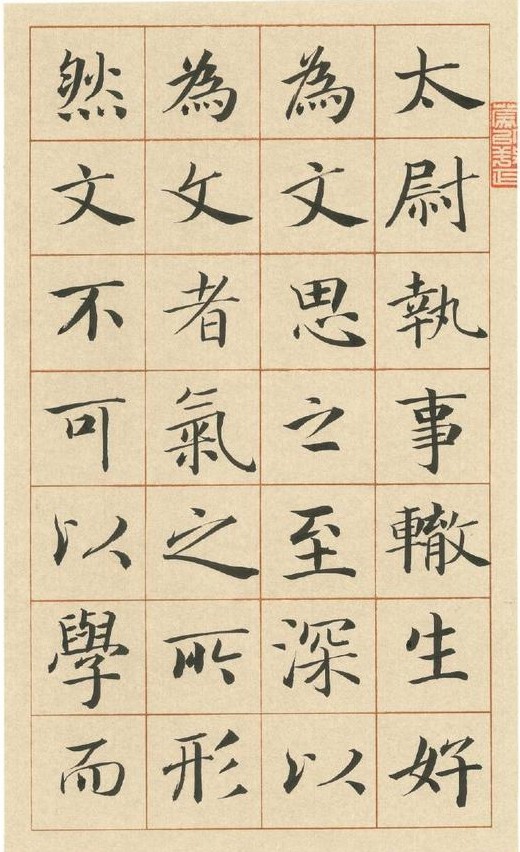 太尉執事轍生好
為文思之至深以
為文者氣之所形
然文不可以學而